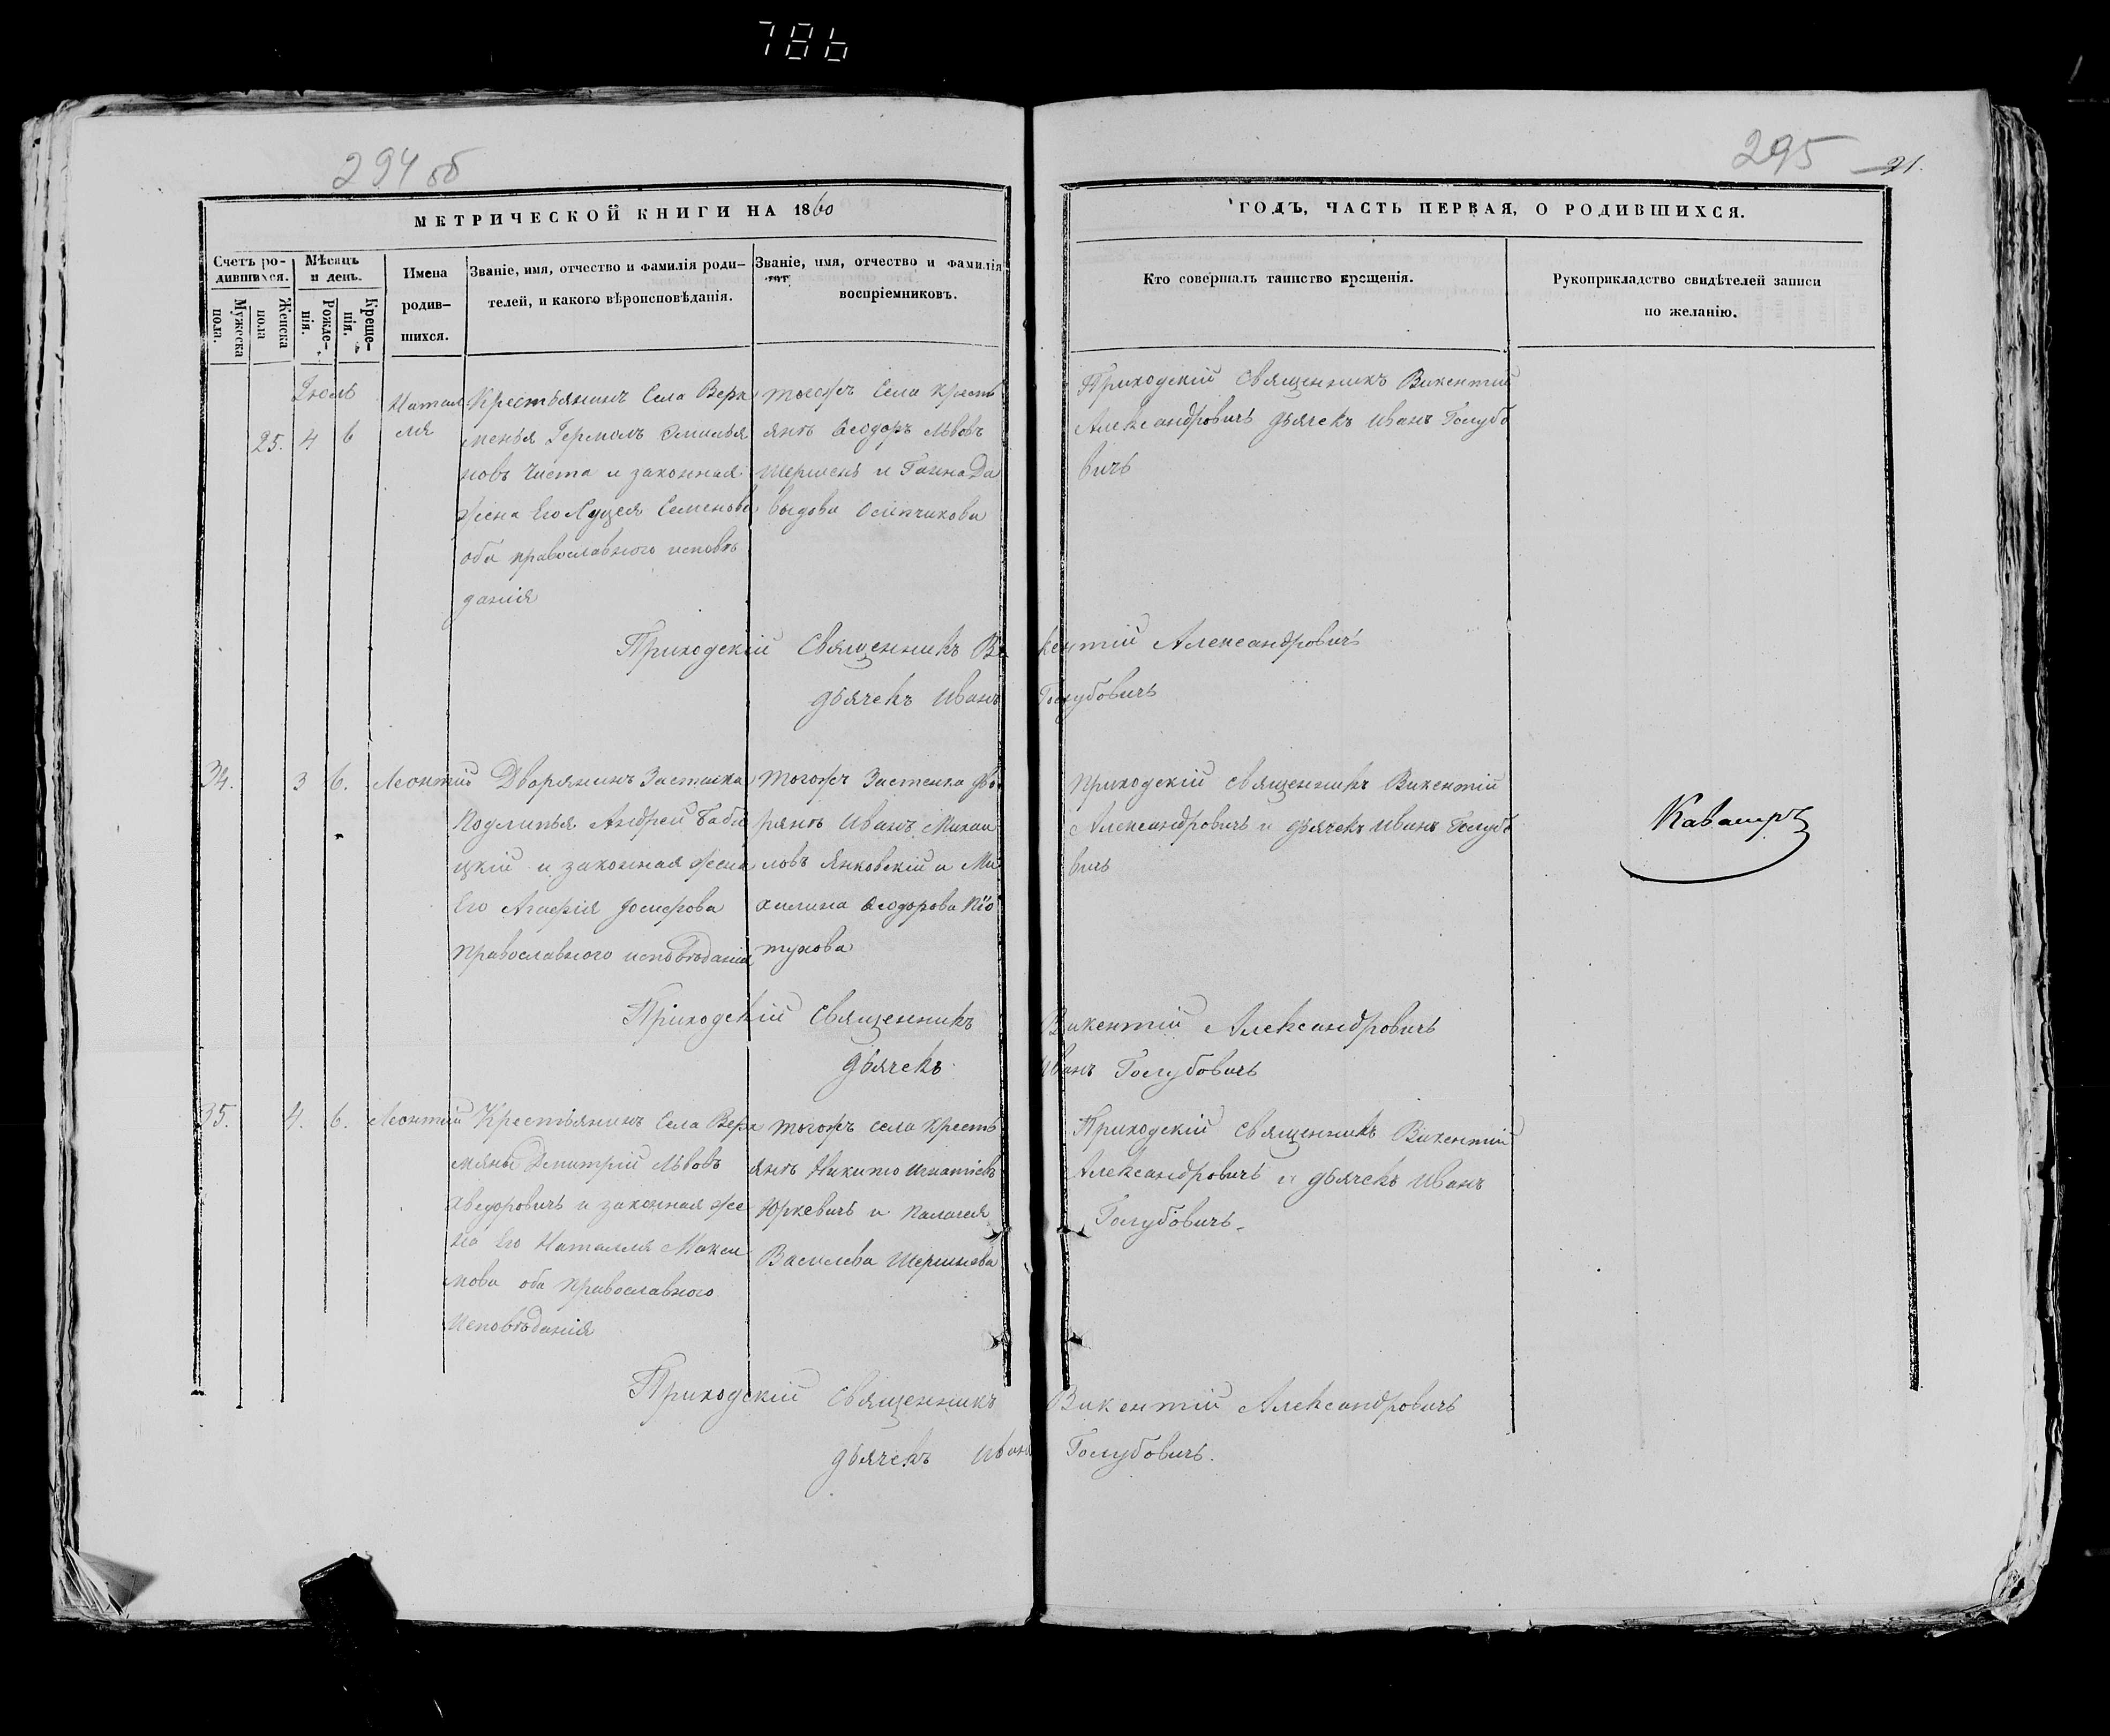 786
294 об
295 21.
МЕТРИЧЕСКОЙ КНИГИ НА 1860
ГОДЪ, ЧАСТЬ ПЕРВАЯ, О РОДИВШИХСЯ.
Счетъ ро-
дившихся.
Мужеска
пола.
Женска
пола
Мѣсяцъ
и день.
Рожде-
нія.
Креще-
нія.
Имена
родив-
шихся.
Званіе, имя, отчество и фамилія роди-
телей, и какого вѣроисповѣданія.
Званіе, имя, отчество и фамилія
воспріемниковъ.
Кто совершалъ таинство крещенія.
Рукоприкладство свидѣтелей записи
по желанію.
Іюль
25. 4 6
Натал
лія
Крестьянинъ Села Верх
менья Гермолъ Омилья
новъ Чиста и законная
жена Его Луцея Семенова
оба православного исповѣ
данія
тогожъ Села Кресть
янъ Ѳеодоръ Львовъ
Шершень и Ганна Да
выдова
Приходскій Священникъ Викентий
Александровичъ дьячекъ Иванъ Голубо
вичъ
Приходскій Священникъ Викентій Александровичъ
дьячекъ Иванъ Голубовичъ
34. 3 6.
Леонтій
Дворянинъ Застенка
Подлипья Андрей Бабе
цкій и законная жена
Его Агафія
Православного исповѣданій
Тогожъ Застенка дво
рянъ Иванъ Михаи
ловъ Янковскій и Ми
халина Ѳеодорова Піо
тухова
Приходскій Священникъ Викентій
Александровичъ и дьячекъ Иванъ Голубо
вичъ
Приходскій Священникъ Викентій Александровичъ
дьячекъ Иванъ Голубовичъ
35. 4. 6.
Леонтій
Крестьянинъ Села Верх
мяны Дмитрій Львовъ
Хведоровичъ и законная же
на Его Наталля Макси
мова оба православного
Исповѣданія
Тогожъ села Кресть
янъ Никито Игнатіевъ
Юркевичъ и Палагея
Василева Шершнева
Приходскій Священникъ Викентій
Александровичъ и дьячекъ Иванъ
Голубовичъ.
Приходскій Священникъ Викентій Александровичъ
дьячекъ Иванъ Голубовичъ.